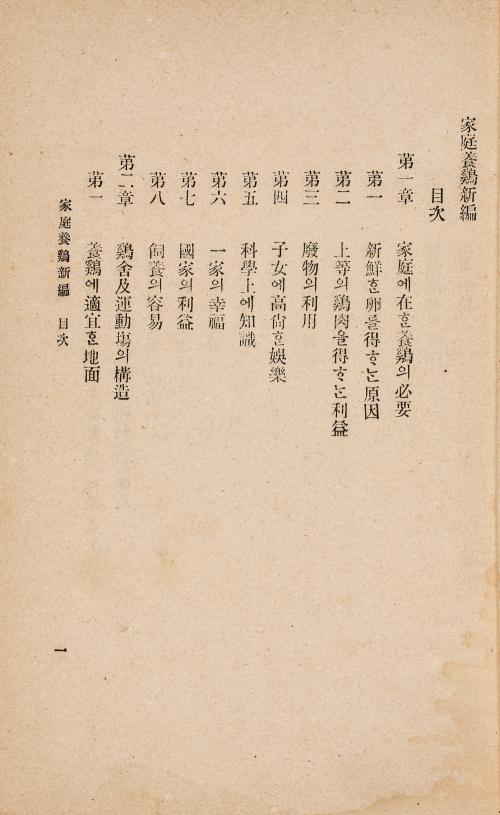 家庭養鷄新編
目次
第一章 家庭에在ᄒᆞᆫ養鷄의必要
第一 新鮮ᄒᆞᆫ卵를得ᄒᆞᄂᆞᆫ原因
第二 上等의鷄肉을得ᄒᆞᄂᆞᆫ利益
第三 廢物의利用
第四 子女에高尙ᄒᆞᆫ娛樂
第五 科學上에知識
第六 一家의幸福
第七 國家의利益
第八 飼養의容易
第二章 鷄舍及運動塲의構造
第一 養鷄에適宜ᄒᆞᆫ地面
家庭養鷄新編 目次
一